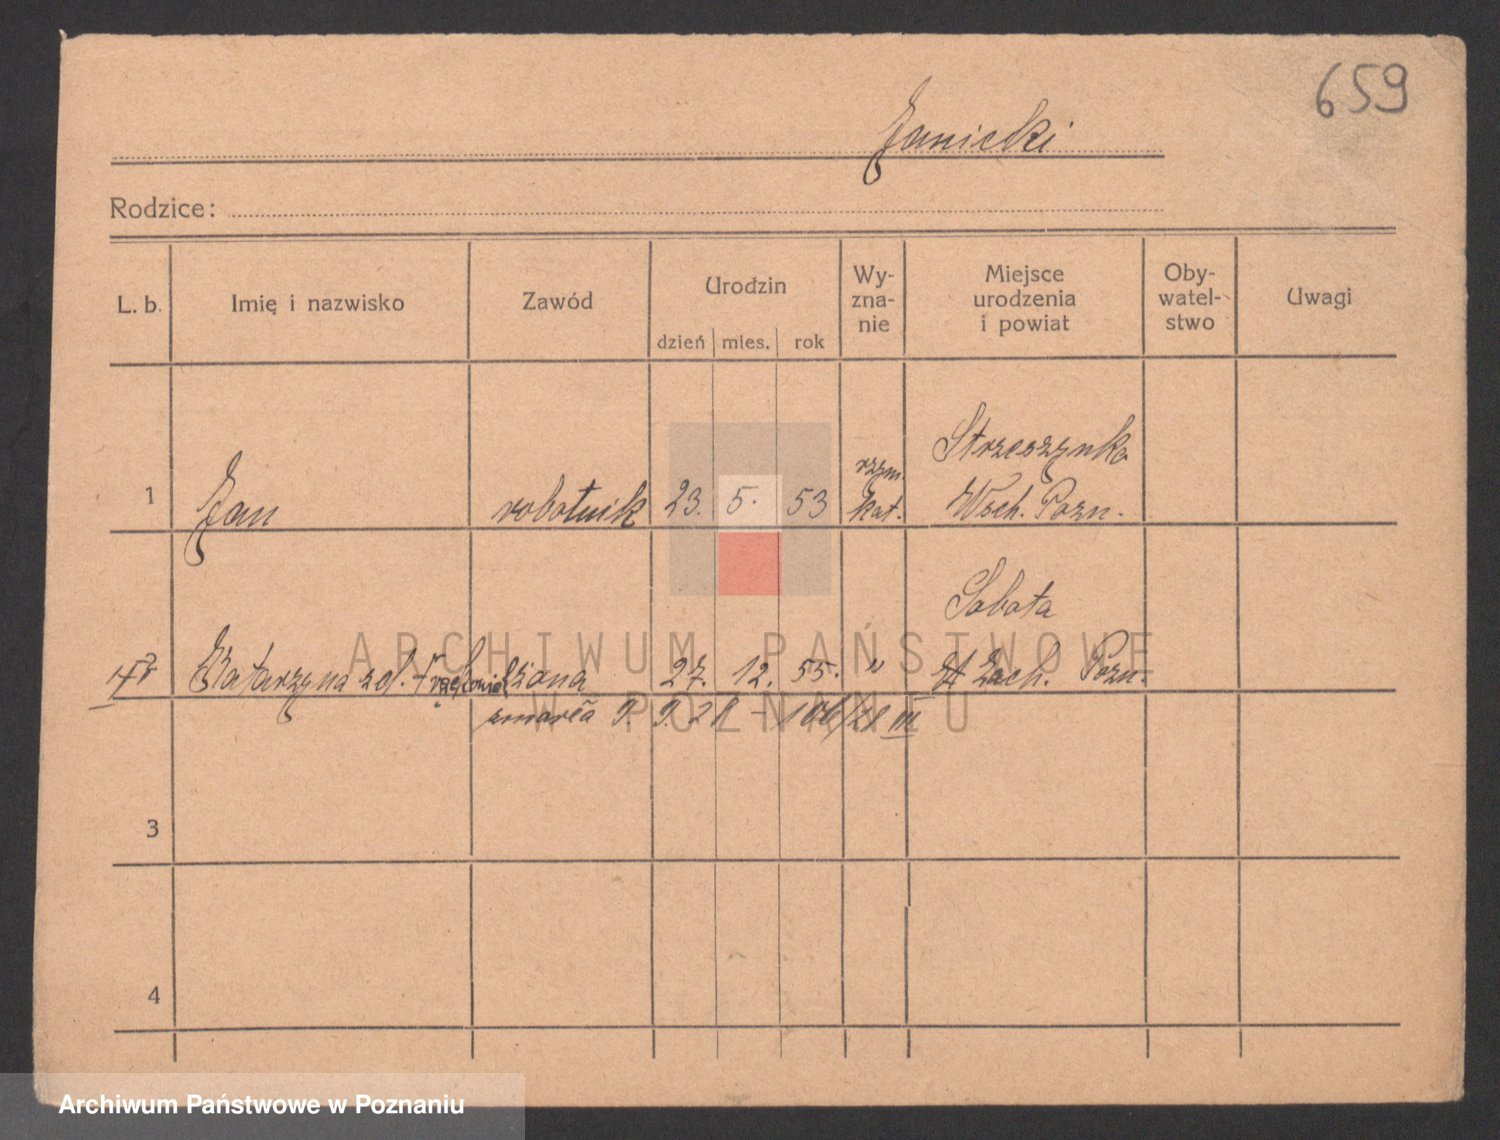 659
Janicki
Rodzice:
L. b. Imię i nazwisko Zawód Urodzin dzień mies. rok Wy-zna-nie Miejsce urodzenia i powiat Oby-watel-stwo Uwagi
1 Jan robotnik 23. 5. 53 rzym. kat. Strzeszynko Wsch. Pozn.
2 Katarzyna z d. żona 27. 12. 55. " Sobota Zach. Pozn.
zmarła
3
4
ARCHIWUM PAŃSTWOWE
W POZNANIU
Archiwum Państwowe w Poznaniu